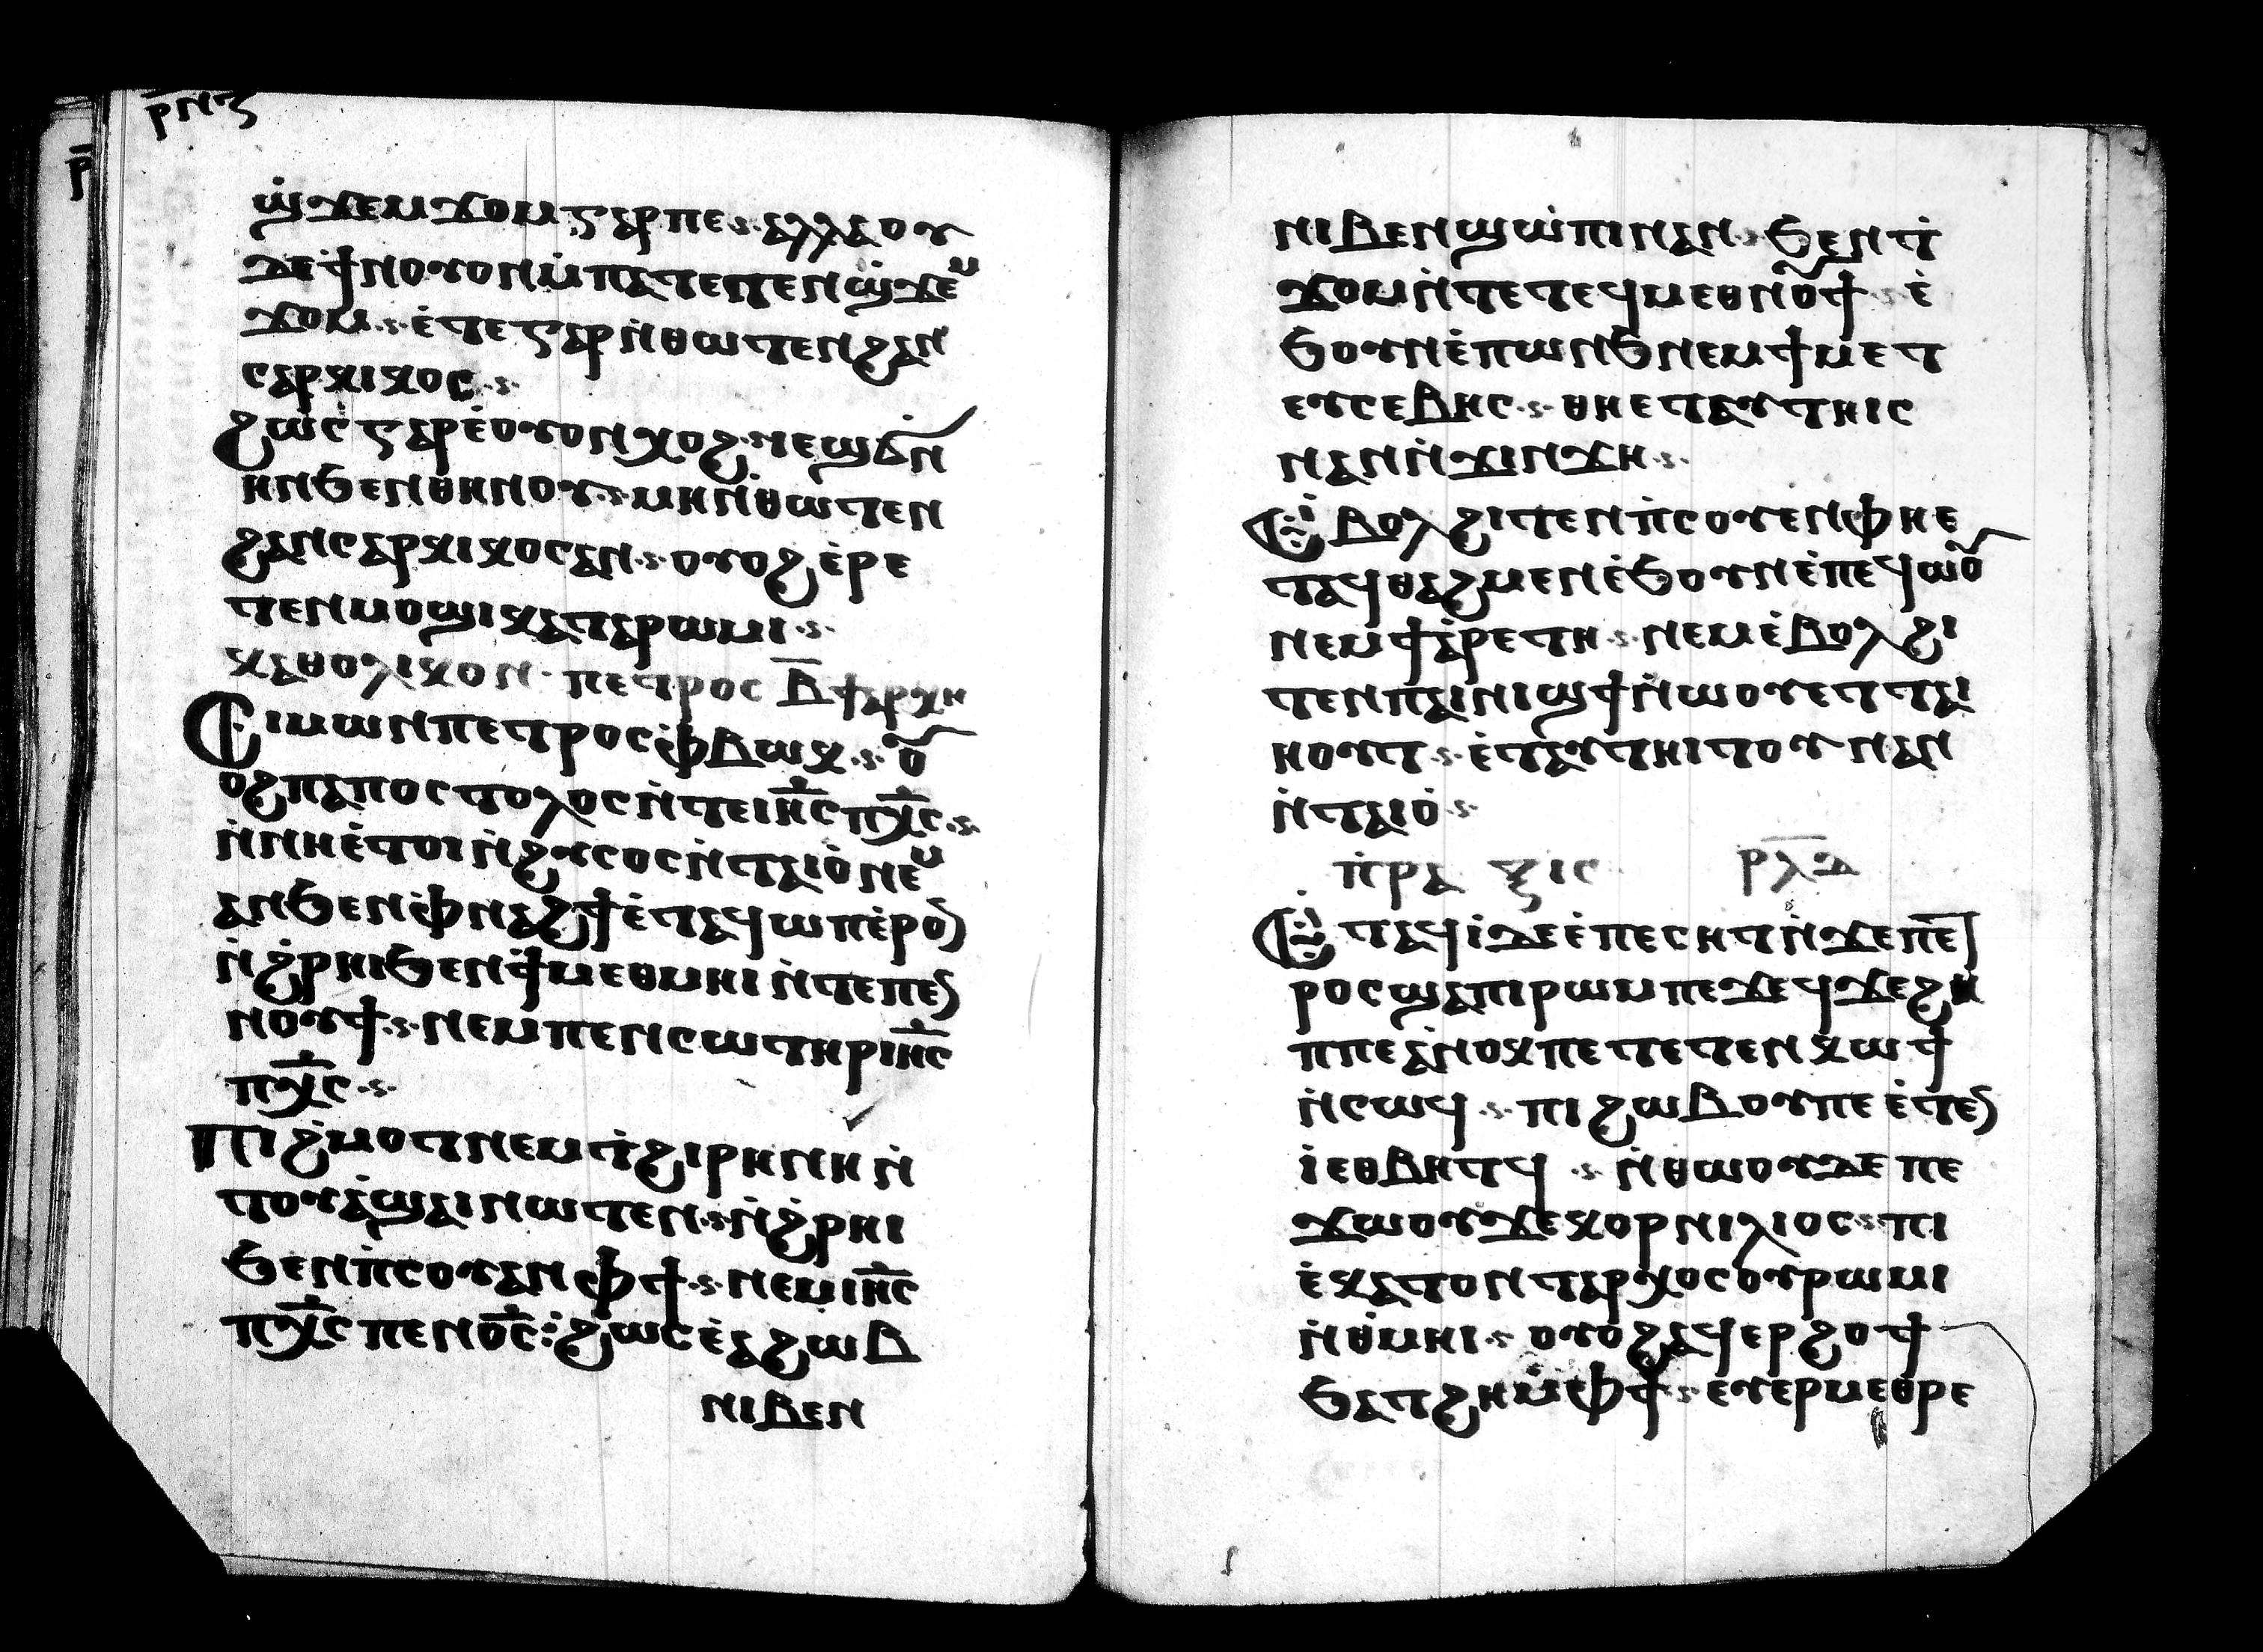 ⲣⲛⲍ
ϣ̇ϫⲉⲙϫⲟⲙⲅⲁⲣⲡⲉ·ⲁⲗⲗⲁⲟⲩ
ⲇⲉϯⲛⲟⲩⲟⲛⲙ̇ⲡⲁⲧⲉⲧⲉⲛϣ̇ϫⲉⲙ
ϫⲟⲙ·ⲉ̇ⲧⲉⲅⲁⲣⲛ̇ⲑⲱⲧⲉⲛϩⲁⲛ
ⲥⲁⲣⲕⲓⲕⲟⲥ·
ϩⲱⲥⲅⲁⲣⲉ̇ⲟⲩⲟⲛⲭⲟϩ·ⲛⲉⲙϣϭⲛ
ⲏⲛϧⲉⲛⲑⲏⲛⲟⲩ·ⲙⲏⲛ̇ⲑⲱⲧⲉⲛ
ϩⲁⲛⲥⲁⲣⲕⲓⲕⲟⲥⲁⲛ·ⲟⲩⲟϩⲉ̇ⲣⲉ
ⲧⲉⲛⲙⲟϣⲓⲕⲁⲧⲁⲣⲱⲙⲓ·
ⲕⲁⲑⲟⲗⲓⲕⲟⲛ·ⲡⲉⲧⲣⲟⲥ ⲃ̅ϯⲁⲣⲭⲏ
Ⲥⲓⲙⲱⲛⲡⲉⲧⲣⲟⲥⲫ̇ⲃⲱⲕ·ⲟⲩ
ⲟϩⲡⲁⲡⲟⲥⲧⲟⲗⲟⲥⲛ̇ⲧⲉⲓⲏ̅ⲥ̅ⲡⲭ̅ⲥ̅·
ⲛ̇ⲛⲏⲉ̇ⲧⲟⲓⲛ̇ϩⲩⲥⲟⲥⲛ̇ⲧⲁⲓⲟ̇ⲛⲉⲙ
ⲁⲛϧⲉⲛⲫ̇ⲛⲁϩϯⲉ̇ⲧⲁϥⲱⲡⲉ̇ⲣⲟⲛ
ⲛ̇ϩ̇ⲣⲏⲓϧⲉⲛϯⲙⲉⲑⲙⲏⲓⲛ̇ⲧⲉⲡⲉⲛ
ⲛⲟⲩϯ·ⲛⲉⲙⲡⲉⲛⲥⲱⲧⲏⲣⲓⲏ̅ⲥ̅
ⲡⲭ̅ⲥ̅·
Ⲡⲓϩ̇ⲙⲟⲧⲛⲉⲙⲧ̇ϩⲓⲣⲏⲛⲏⲛ̇
ⲧⲟⲩⲁ̇ϣⲁⲓⲛⲱⲧⲉⲛ·ⲛ̇ϩ̇ⲣⲏⲓ
ϧⲉⲛⲡ̇ⲥⲟⲩⲁⲛⲫϯ·ⲛⲉⲙⲓⲏ̅ⲥ̅
ⲡⲭ̅ⲥ̅ⲡⲉⲛⲟ̅ⲥ̅:ϩⲱⲥⲉ̇ⲁϩⲱⲃ
ⲛⲓⲃⲉⲛ
ⲛⲓⲃⲉⲛϣⲱⲡⲓⲛⲁⲛ·ϧⲉⲛⲧ̇
ϫⲟⲙⲛ̇ⲧⲉⲧⲉϥⲙⲉⲑⲛⲟⲩϯ·ⲉ̇
ϧⲟⲩⲛⲉ̇ⲡⲱⲛϧⲛⲉⲙϯⲙⲉⲧ
ⲉⲩⲥⲉⲃⲏⲥ·ⲑⲏⲉⲧⲁⲩⲧⲏⲓⲥ
ⲛⲁⲛⲛ̇ϫⲓⲛϫⲏ·
Ⲉ̇ⲃⲟⲗϩⲓⲧⲉⲛⲡ̇ⲥⲟⲩⲉⲛⲫⲏⲉ
ⲧⲁϥⲑⲁϩⲙⲉⲛⲉ̇ϧⲟⲩⲛⲉ̇ⲡⲉϥⲱⲟⲩ
ⲛⲉⲙϯⲁⲣⲉⲧⲏ·ⲛⲉⲙⲉ̇ⲃⲟⲗϩⲓ
ⲧⲉⲛⲡⲁⲓⲛⲓϣϯⲛ̇ⲱⲟⲩⲉⲧⲧⲁⲓ
ⲏⲟⲩⲧ·ⲉ̇ⲧⲁⲩⲧⲏⲓⲧⲟⲩⲛⲁⲛ
ⲛ̇ⲧⲁⲓⲟ̇·
ⲡ̇ⲣⲁ ⲝⲓⲥ ⲣⲗⲇ
Ⲉ̇ⲧⲁϥⲓ̇ⲇⲉⲉ̇ⲡⲉⲥⲏⲧⲛ̇ϫⲉⲡⲉⲧ
ⲣⲟⲥϣⲁⲡⲓⲣⲱⲙⲓⲡⲉϫⲉϥϫⲉϩⲏ
ⲡⲡⲉⲁ̇ⲛⲟⲕⲡⲉⲧⲉⲧⲉⲛⲕⲱϯ
ⲛ̇ⲥⲱϥ·ⲡⲓϩⲱⲃⲟⲩⲡⲉⲉ̇ⲧⲉⲛ
ⲓ̇ⲉⲑⲃⲏⲧϥ·ⲛ̇ⲑⲱⲟⲩⲇⲉⲡⲉ
ϫⲱⲟⲩϫⲉⲕⲟⲣⲛⲓⲗⲓⲟⲥ·ⲡⲓ
ⲉ̇ⲕⲁⲧⲟⲛⲧⲁⲣⲭⲟⲥⲟⲩⲣⲱⲙⲓ
ⲛ̇ⲑ̇ⲙⲏⲓ·ⲟⲩⲟϩⲁϥⲉⲣϩⲟϯ
ϧⲁⲧϩⲏⲙ̇ⲫϯ·ⲉⲩⲉⲣⲙⲉⲑⲣⲉ